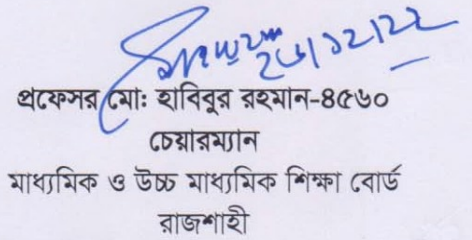 ২৬/১২/২২
প্রফেসর মোঃ হাবিবুর রহমান-৪৫৬০
চেয়ারম্যান
মাধ্যমিক ও উচ্চ মাধ্যমিক শিক্ষা বোর্ড
রাজশাহী